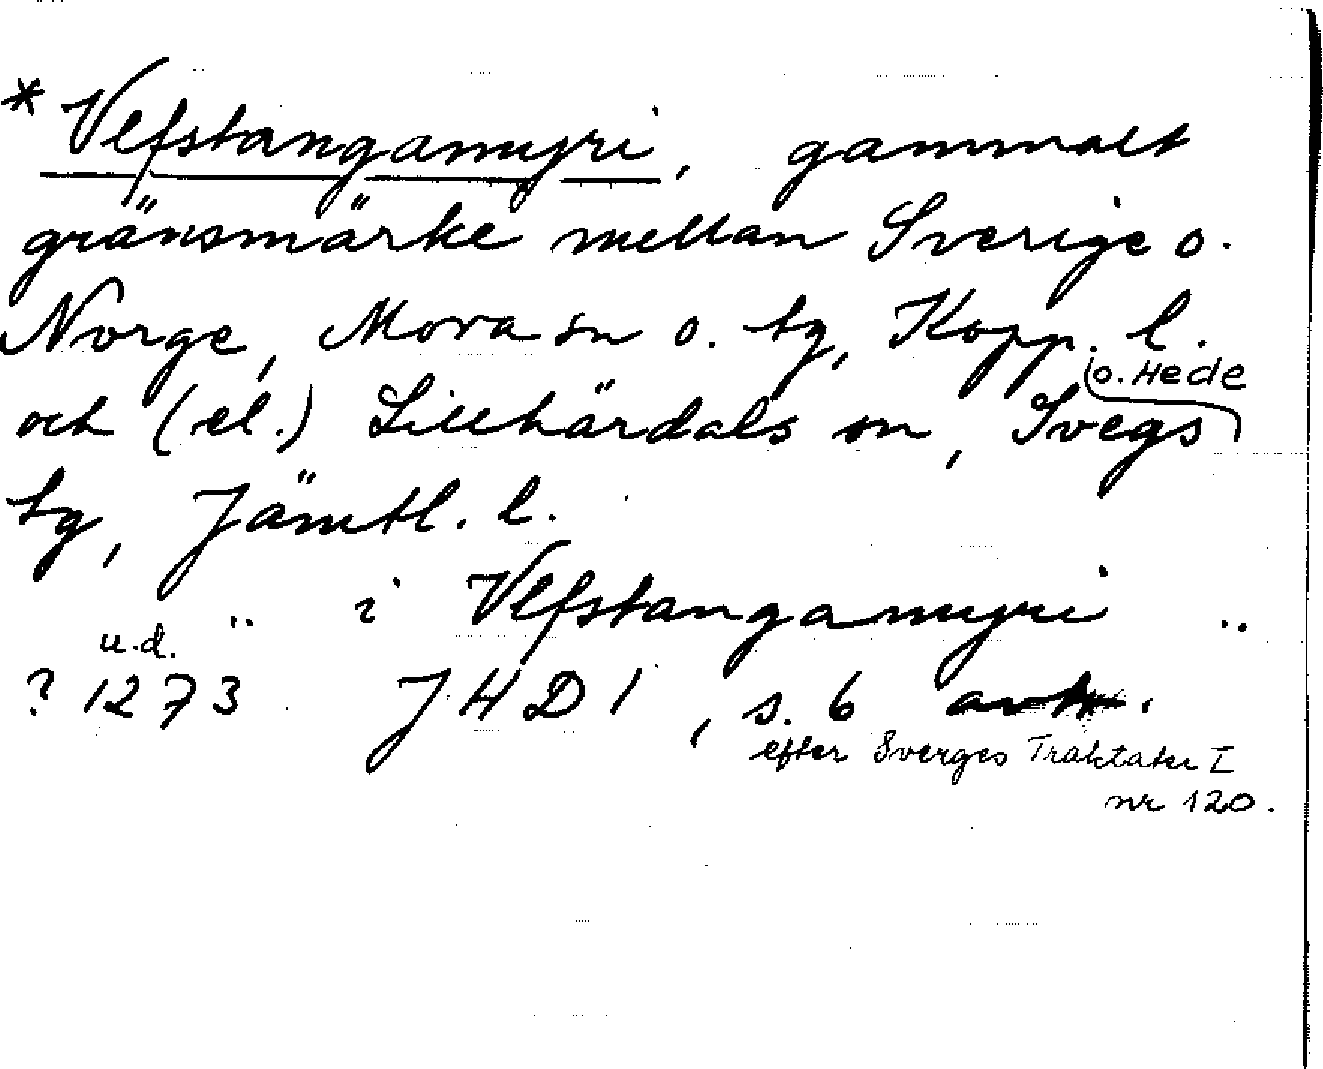 * Vefstangamyri, gammalt
gränsmärke mellan Sverige o.
Norge, Mora sn o. tg, Kopp. l.
och (el.) Lillhärdals sn, Svegs
o. Hede
tg, Jämtl. l.
.. i Vefstangamyri ..
u.d.
? 1273 JHD 1, s. 6
efter Sverges Traktater I
nr 120.